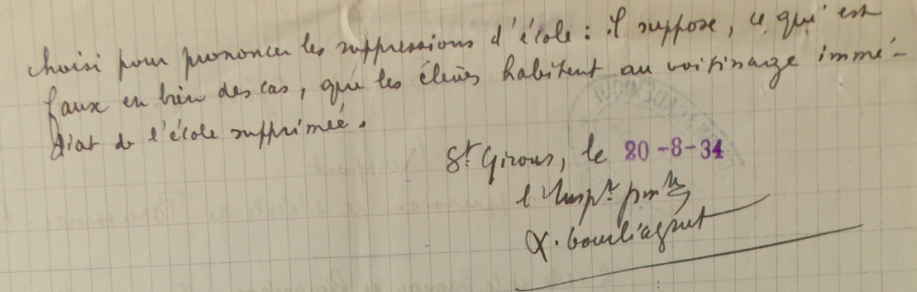 choisi pour prononcer les suppressions d'école : il suppose, ce qui est
faux en bien des cas, que les élèves habitent au voisinage immé-
diat de l'école supprimée.
St Girons, le 20-8-34
l'Inspr prim